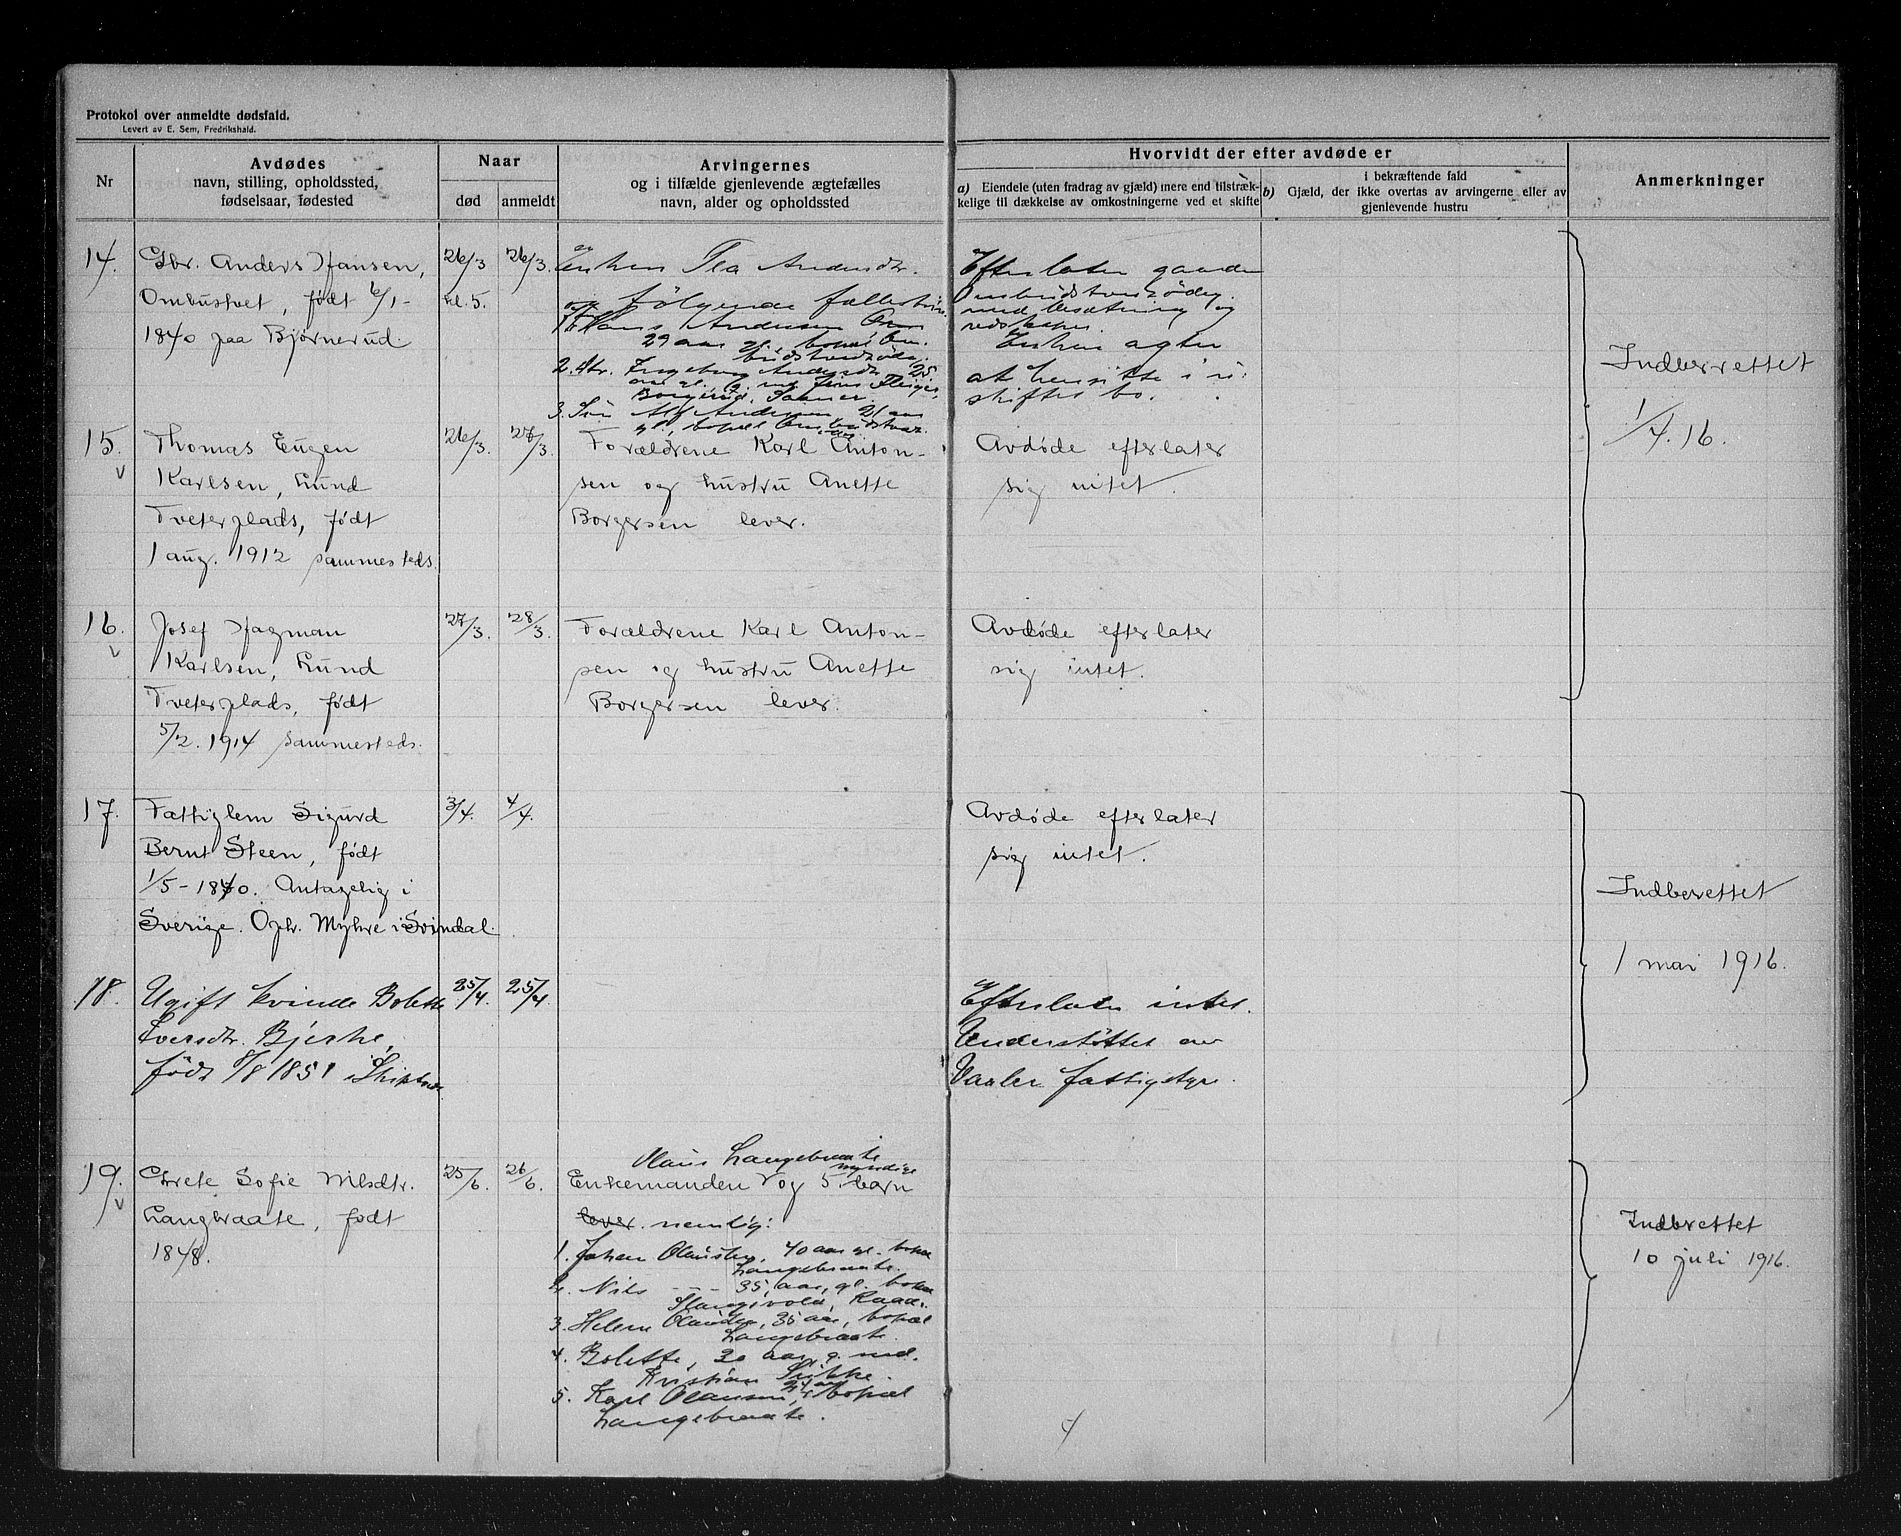 Protokol over anmeldte dødsfald.
Levert av E. Sem, Fredrikshald.
Nr
Avdødes
navn, stilling, opholdssted,
fødselsaar, fødested
Naar
død
anmeldt
Arvingernes
og i tilfælde gjenlevende ægtefælles
navn, alder og opholdssted
Hvorvidt der efter avdøde er
a) Eiendele (uten fradrag av gjæld) mere end tilstræk-
kelige til dækkelse av omkostningerne ved et skifte
i bekræftende fald
b) Gjæld, der ikke overtas av arvingerne eller av
gjenlevende hustru
Anmerkninger
14.
Gbr. Anders Hansen,
Ombustvet, født 6/1-
1840 paa Bjørnerud.
26/3
kl. 5.
26/3.
Enken Tea Andersdtr.
og følgende fællesbørn
1. Hans Andersen Om
29 aar gl., bopæl Om-
budstvedtødeg.
2. dtr. Ingeborg Andersdtr. 25
aar gl. g. med Jens
Borgerud, Saaner.
3. Søn Alf Andersen 21 aar
gl., bopæl Ombudstvet.
Efterlater gaarden
Ombudstvedtødeg.
med besætning og
redskaper.
Enken agter
at hensitte i u-
skiftet bo.
15.
Thomas Eugen
Karlsen, Lund
Tveterplads, født
1 aug. 1912 sammesteds.
26/3.
27/3.
Forældrene Karl Anton-
sen og hustru Anette
Borgersen lever.
Avdøde efterlater
sig intet.
Indberettet
1/4. 16.
16.
Josef Hagman
Karlsen, Lund
Tveterplads, født
5/2. 1914 sammesteds.
27/3.
28/3.
Forældrene Karl Anton-
sen og hustru Anette
Borgersen lever.
Avdøde efterlater
sig intet.
17.
Fattiglem Sigurd
Bernt Steen, født
1/5 - 1840. Antagelig i
Sverige. Oph. Myhre i Svindal.
3/4.
4/4.
Avdøde efterlater
sig intet.
Indberettet
1 mai 1916.
18.
Ugift kvinde Bolette
Iversdtr. Bjerke,
født 8/8 1851 i Skiptvet
25/4.
25/4.
Efterlater intet.
Understøttet av
Vaaler fattigstyre.
19.
Grete Sofie Nilsdtr.
Langbraate, født
1848.
25/6.
26/6.
Olaus Langebraate
myndige
Enkemanden V og 5 barn
lever. nemlig:
1. Johan Olausen, 40 aar gl. bopæl
Langebraate.
2. Nils - - - 35 aar, gl. bopæl
Slangsvold, Raade.
3. Helene Olausen, 35 aar, bopæl
Langebraate.
4. Bolette, 30 aar, g. med.
Kristian
5. Karl Olausen, 24 aar bopæl
Langebraate.
Indberettet
10 juli 1916.